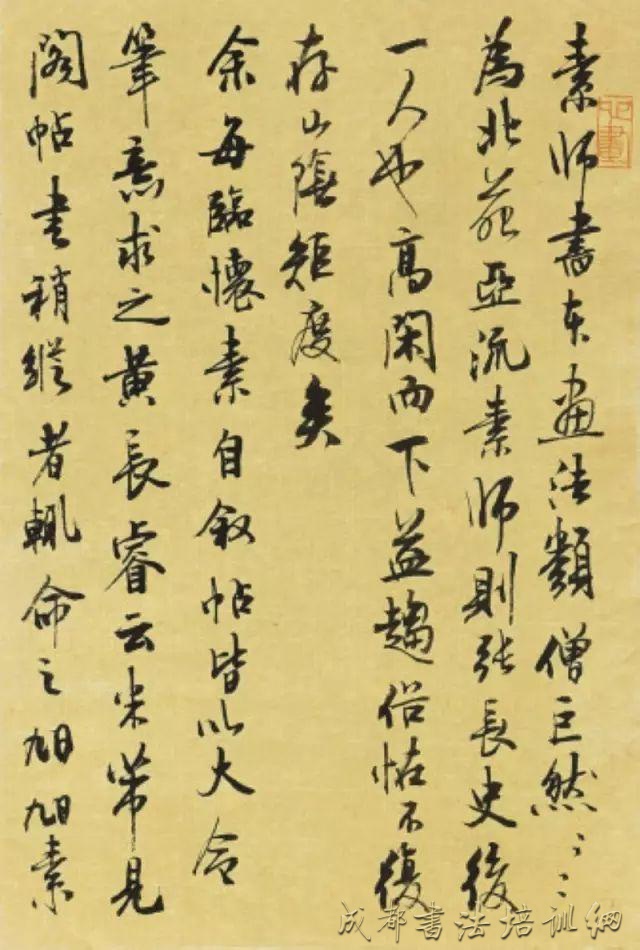 素師書本畫法類僧巨然〻〻
為北苑亞流素師則張長史後
一人也高閑而下益趨俗怙不復
存山陰矩度矣
余每臨懷素自叙帖皆以大令
筆意求之黃長睿云米芾見
閣帖書稍縱者輒命之旭旭素
成都書法培訓網